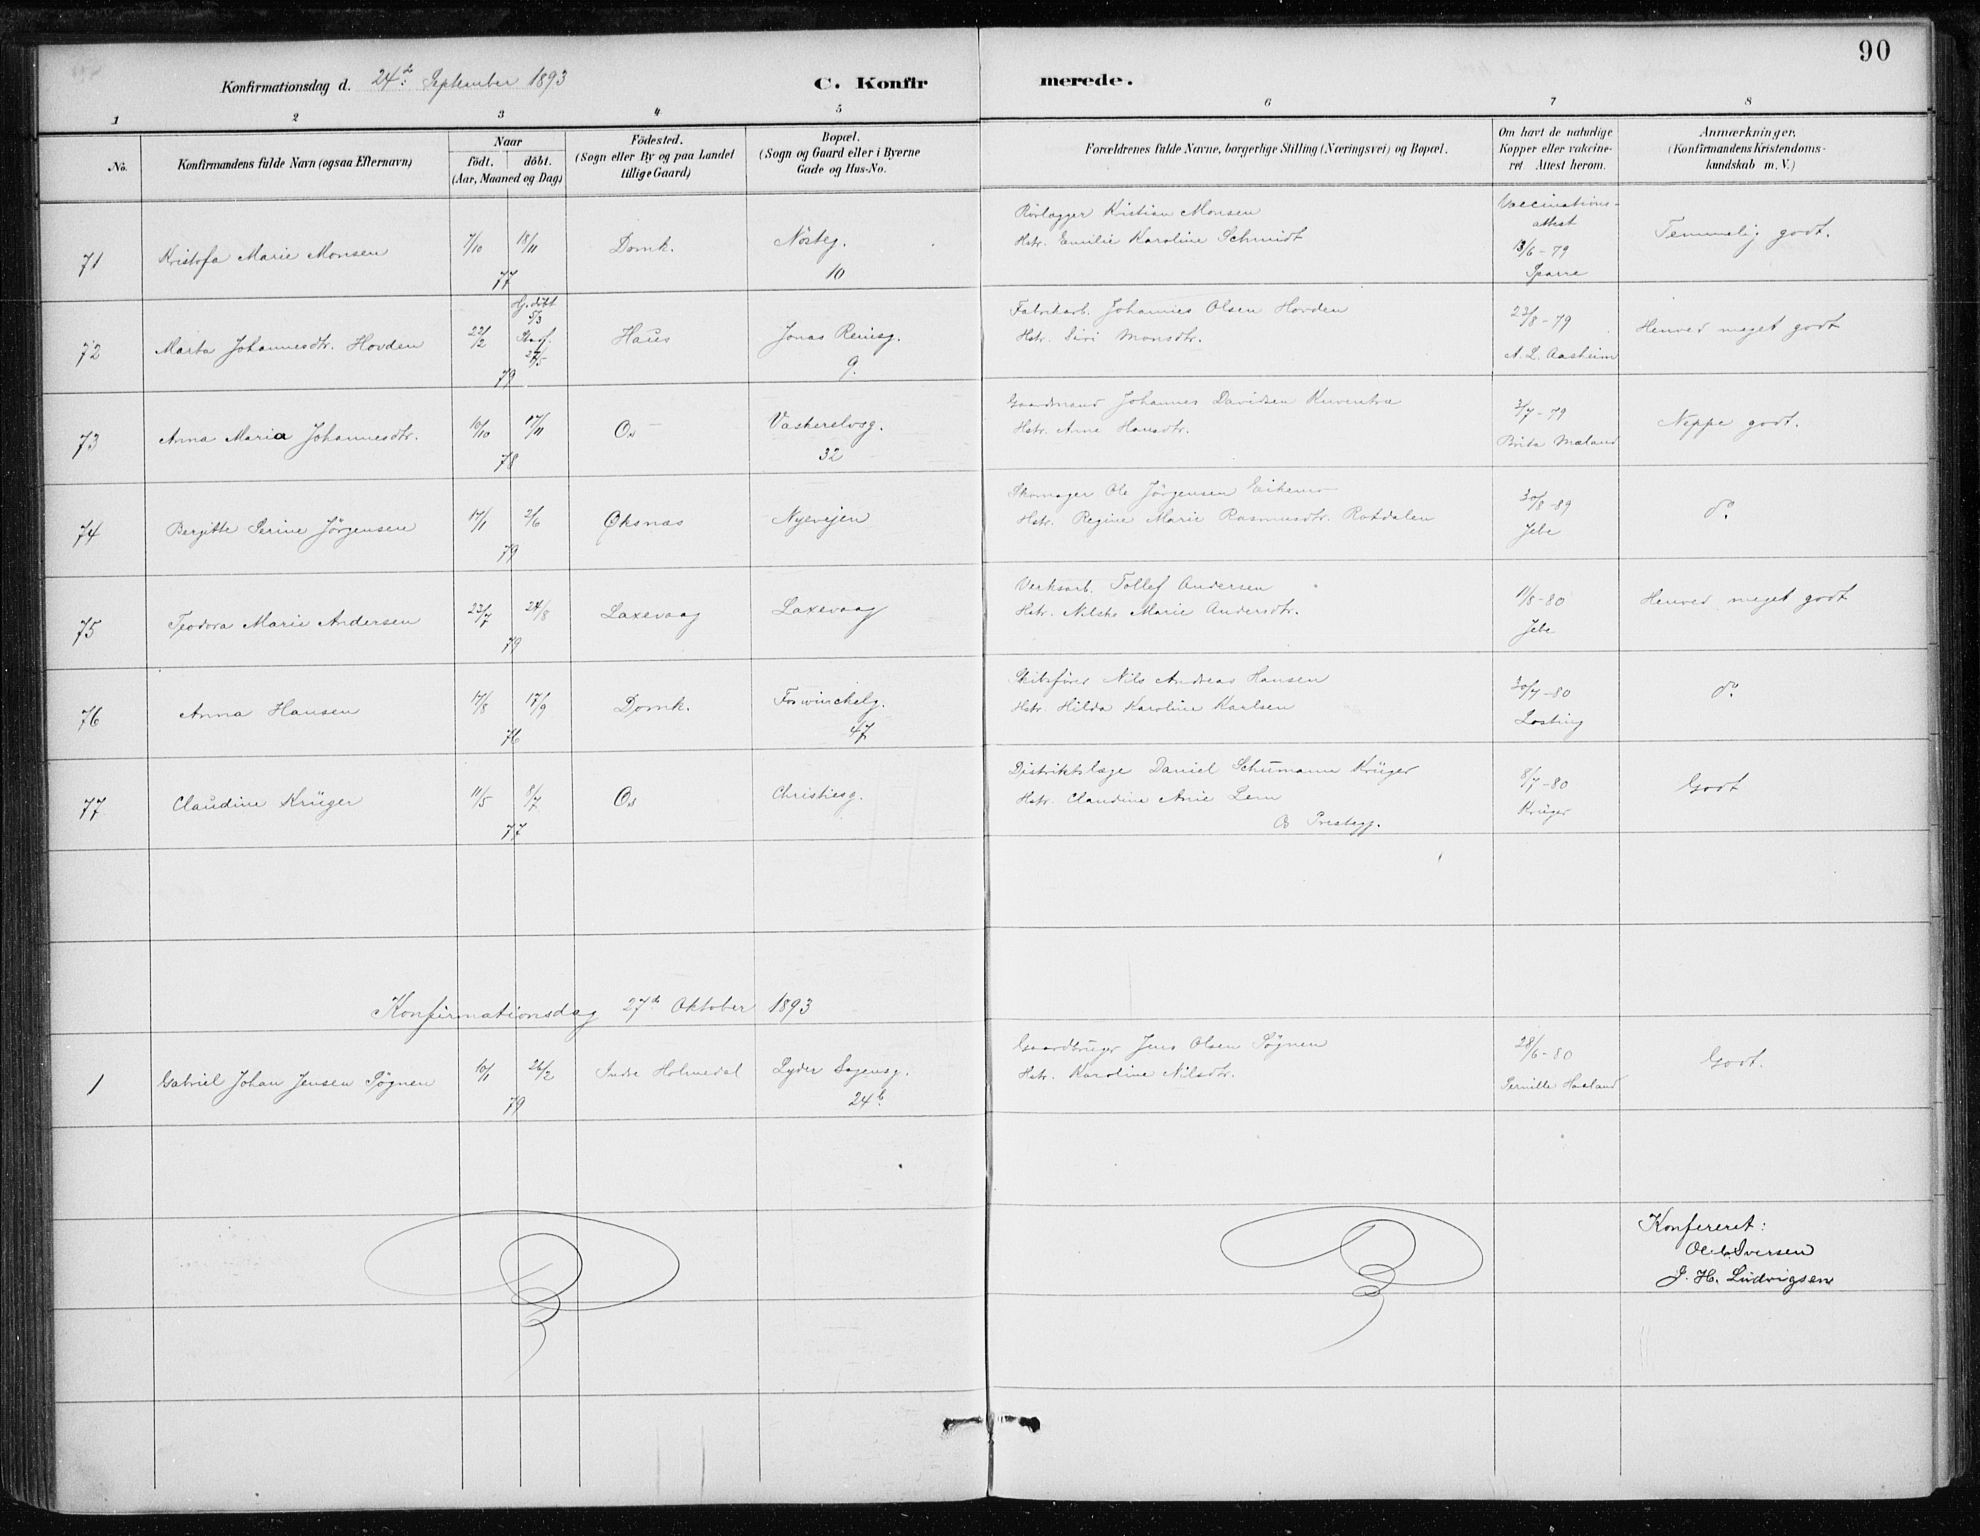 90
Konfirmationsdag d. 24de September 1893 C. Konfirmerede.
1 2 3 4 5 6 7 8
No. Konfirmandens fulde Navn (ogsaa Efternavn) Naar födt. döbt. (Aar, Maaned og Dag) Födested. (Sogn eller By og paa Landet tillige Gaard) Bopæl. (Sogn og Gaard eller i Byerne Gade og Hus-No. Forældrenes fulde Navne, borgerlige Stilling (Næringsvei) og Bopæl. Om havt de naturlige Kopper eller vakcineret Attest herom. Anmærkninger. (Konfirmandens Kristendomskundskab m. V.)
71 Kristofa Marie Monsen 7/10 18/11 77 Domk. Nösteg. 10 Rörlægger Kristian Monsen
Hstr. Emilie Karoline Schmidt Vaccinationsattest 13/6-79 Sparre Temmelig godt.
72 Marta Johannesdtr. Hovden 22/2 Hj.döbt 5/3 Stadf. 27/5 79 Haus Jonas Reinsg. 9. Fabrikarb. Johannes Olsen Hovden
Hstr. Siri Monsdtr. 23/8-79 A. L. Aasheim Henved meget godt
73 Anna Maria Johannesdtr. 10/10 17/11 78 Os Vaskerelvsg. 32 Gaardmand Johannes Davidsen Kuventræ
Hstr. Anne Hansdtr. 3/7-79 Brita Mæland Neppe godt.
74 Bergitte Serine Jörgensen 17/1 2/6 79 Öksnæs Nyevejen Skomager Ole Jörgensen Eikemo
Hstr. Regine Marie Rasmusdtr. Rotdalen 30/8-89 Jebe do
75 Teodora Marie Andersen 23/7 24/8 79 Laxevaag Laxevaag Verksarb. Tollef Andersen
Hstr. Nilske Marie Andersdtr. 11/8-80 Jebe Henved meget godt
76 Anna Hansen 17/8 17/9 76 Domk. Forswinckelg. 47 Skibsförer Nils Andreas Hansen
Hstr. Hilda Karoline Karlsen 30/7-80 Losting do
77 Claudine Krüger 11/5 8/7 77 Os Christiesg. Distriktslæge Daniel Schumann Krüger
Hstr. Claudine Anie Lem
Os Prestegj. 8/7-80 Krüger Godt
Konfirmationsdag 27de Oktober 1893
1 Gabriel Johan Jensen Tögnen 10/1 26/2 79 Indre Holmedal Lyder Sagensg. 24b. Gaardbruger Jens Olsen Tögnen
Hstr. Karoline Nilsdtr. 28/6-80 Pernille Haaland Godt.
Konfereret:
Ole Iversen
J. H. Ludvigsen